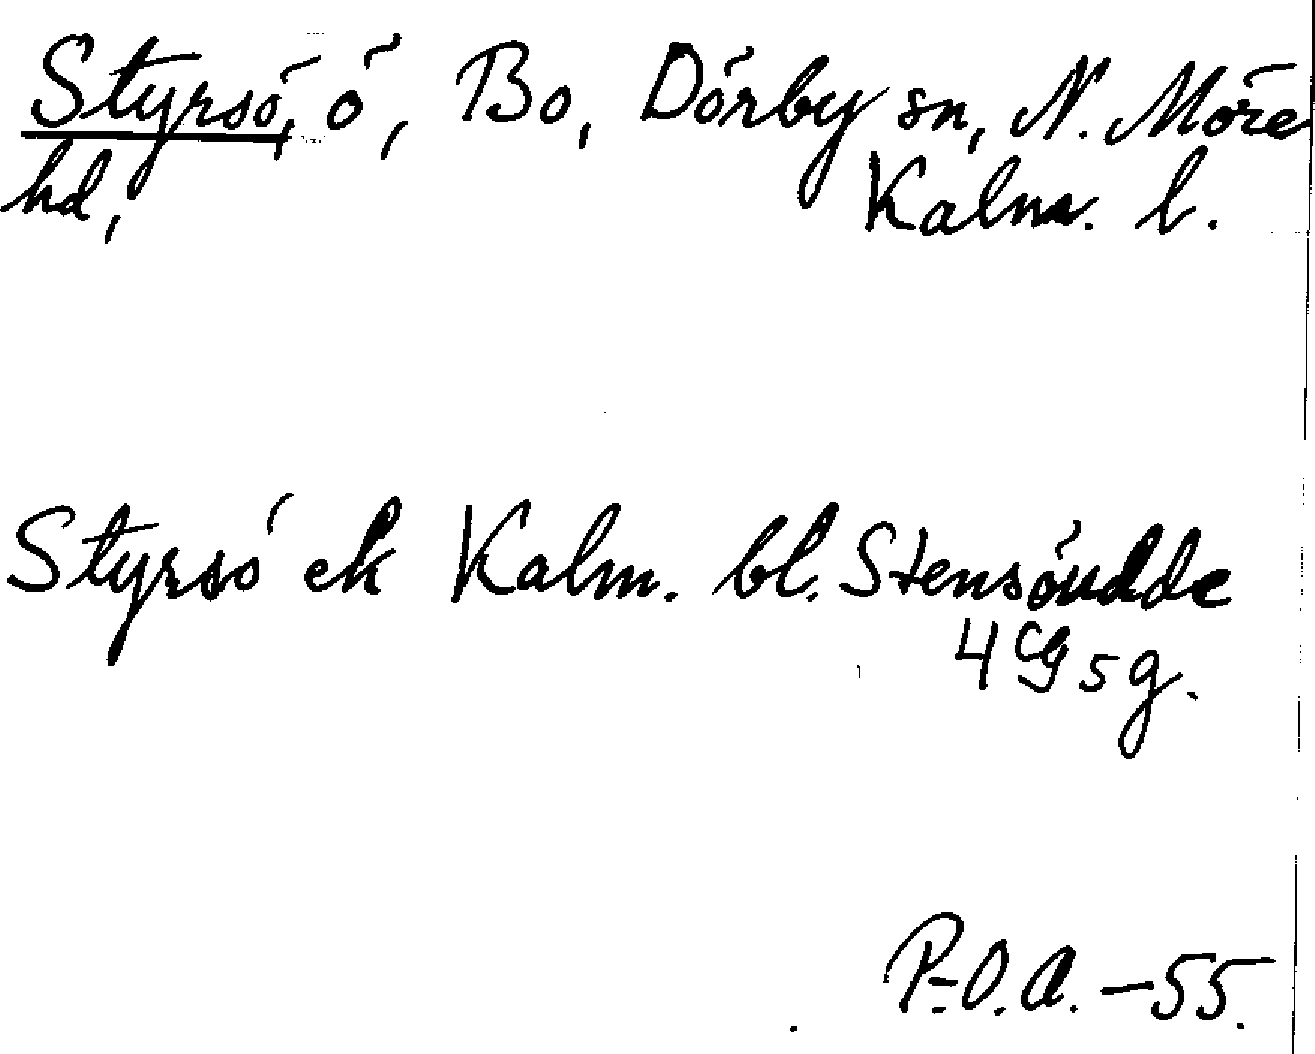 Styrsö, ö, Bo, Dörby sn, N. Möre
hd, Kalm. l.
Styrsö ek Kalm. bl. Stensöudde
4 Cg 5 g.
P.-O.A. -55.